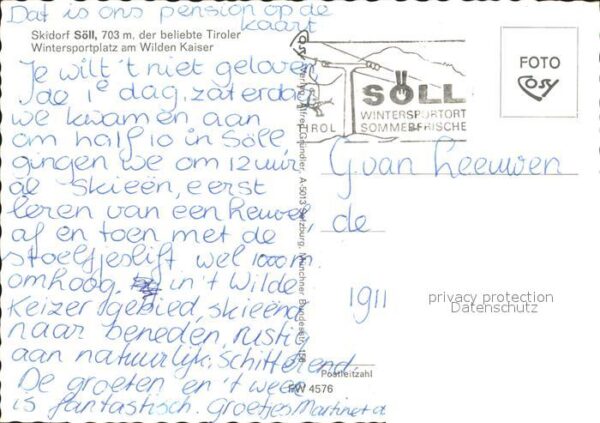 Dat is ons pension op de
kaart
Skidorf Söll, 703 m. der beliebte Tiroler
Wintersportplatz am Wilden Kaiser
Je wilt 't niet geloven
de 1e dag, zaterdag
we kwamen aan
om half 10 in Söll
gingen we om 12 uur
al skieën, eerst
leren van een heuvel
af en toen met de
stoeltjeslift wel 1000 m.
omhoog in 't Wilde
Keizer gebied, skieënd
naar beneden, rustig
aan natuurlijk, schitterend.
De groeten en 't weer
is fantastisch. Groetjes Martinet
COSY
TIROL
SÖLL
WINTERSPORTORT
SOMMERFRISCHE
FOTO
COSY
Verlag Alfred Gründler, A-5013 Salzburg, Münchner Bundesstr. 156
G. van Leeuwen
de
1911
privacy protection
Datenschutz
Postleitzahl
PW 4576